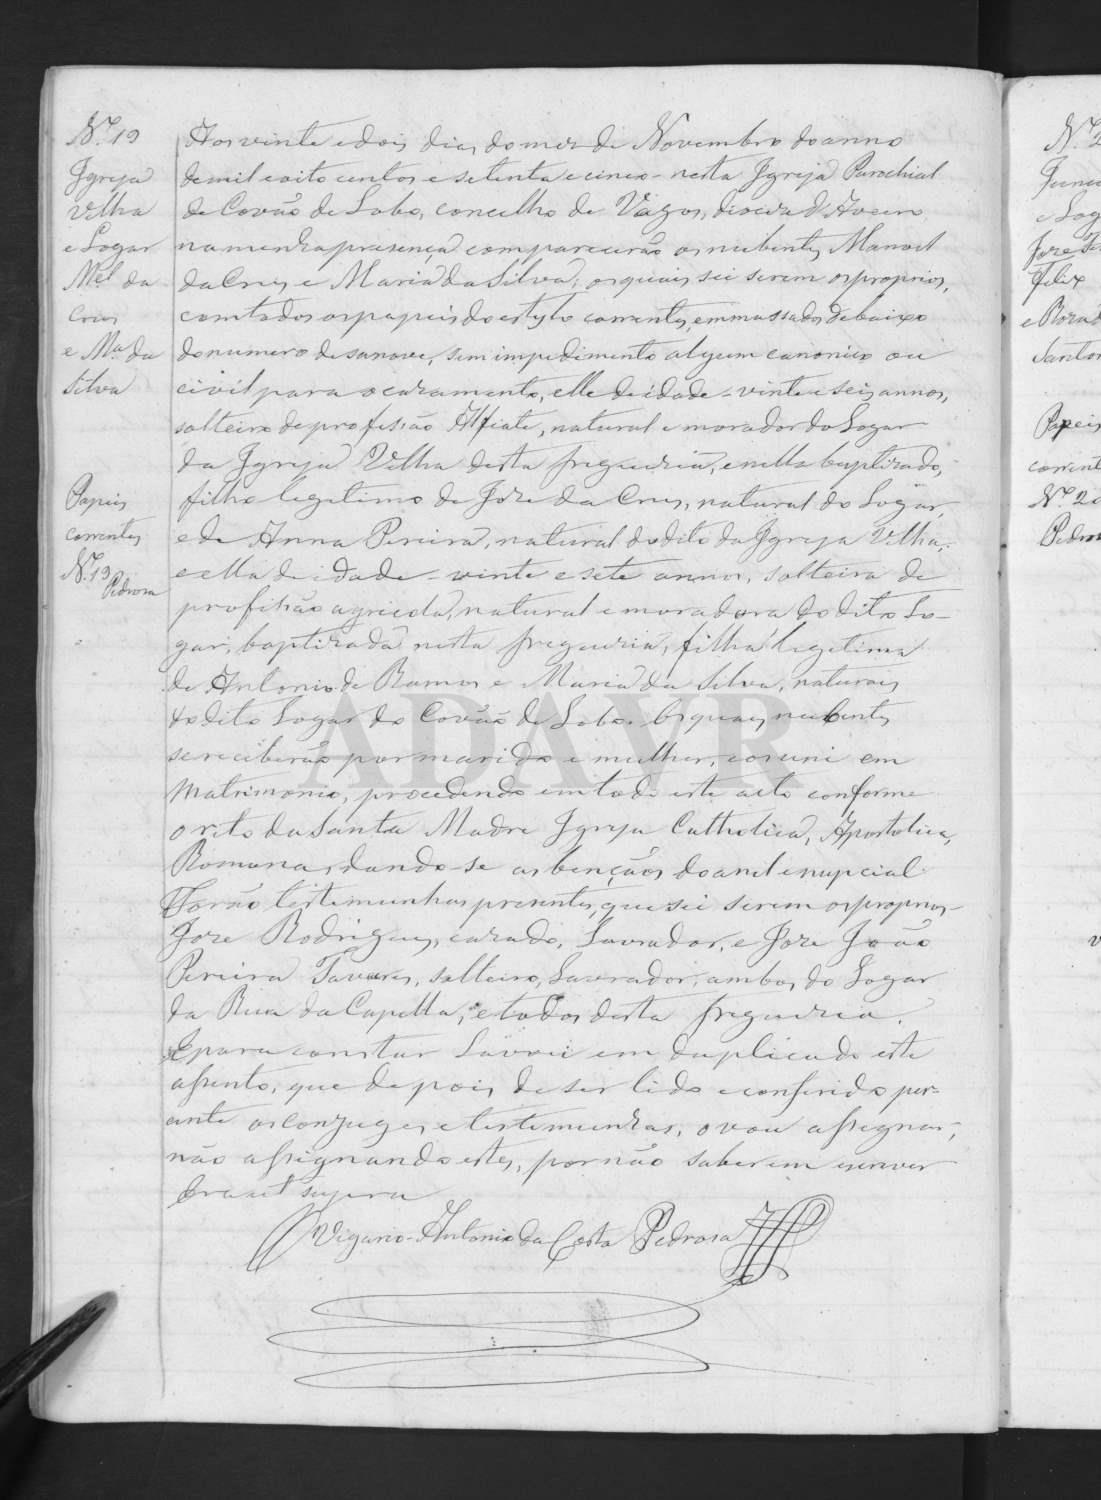 Nº 19
Igreja
Velha
e Logar
Mel da
Cruz
e Mª da
Silva
Papeis
correntes
Nº 19
Pedrosa
Aos vinte e dois dias do mez de Novembro do anno
de mil e oito centos e setenta e cinco - nesta Igreja Parochial
de Covão de Lobo, concelho de Vagos, diocese d'Aveiro
na minha presença comparecerão os nubentes Manoel
da Cruz e Maria da Silva, os quais sei serem os proprios,
com todos os papeis do estylo correntes, emmassados debaixo
do numero desanove, sem impedimento algum canonico ou
civil para o casamento, elle de idade - vinte e seis annos,
solteiro de profissão Alfiate, natural e morador do Logar
da Igreja Velha desta freguezia, e nella baptizado,
filho legitimo de Joze da Cruz, natural do Logar,
e de Anna Pereira, natural do dito da Igreja Velha,
e ella de idade - vinte e sete annos, solteira de
profissão agricola, natural e moradora do dito Lo-
gar, baptizada nesta freguezia, filha legitima
de Antonio de Ramos e Maria da Silva, naturais
do dito Logar do Covão de Lobo. Os quaes nubentes
se receberão por marido e mulher, e os uni em
Matrimonio, procedendo em todo este acto conforme
o rito da Santa Madre Igreja Catholica, Apostolica,
Romana, dando-se as benções do anel e nupcial
Forão testemunhas presentes, que sei serem os proprios
Joze Rodrigues, cazado, Lavrador, e Joze João
Pereira Tavares, solteiro, Lavrador, ambos do Logar
da Rua da Capella, e todos desta freguezia.
E para constar Lavrei em duplicado este
assento, que depois de ser lido e conferido per=
ante os conjuges e testemunhas, o vou assignar,
não assignando estes, por não saberem escrever
Era ut supra
O Vigario - Antonio da Costa Pedrosa
ADAVR
Nº 2
e Log
Joze
Felix
e Roza
Santos
Papeis
corrent
Nº 20
Pedros